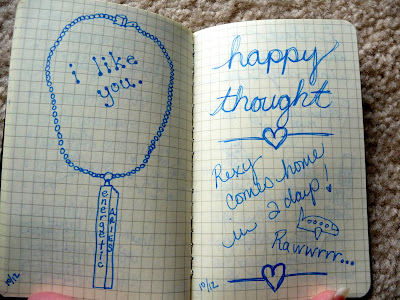 i like
you.
energetic
ARIES
10/12
happy
thought
Rexy
comes home
in 2 days!
Rawwrrr...
10/12